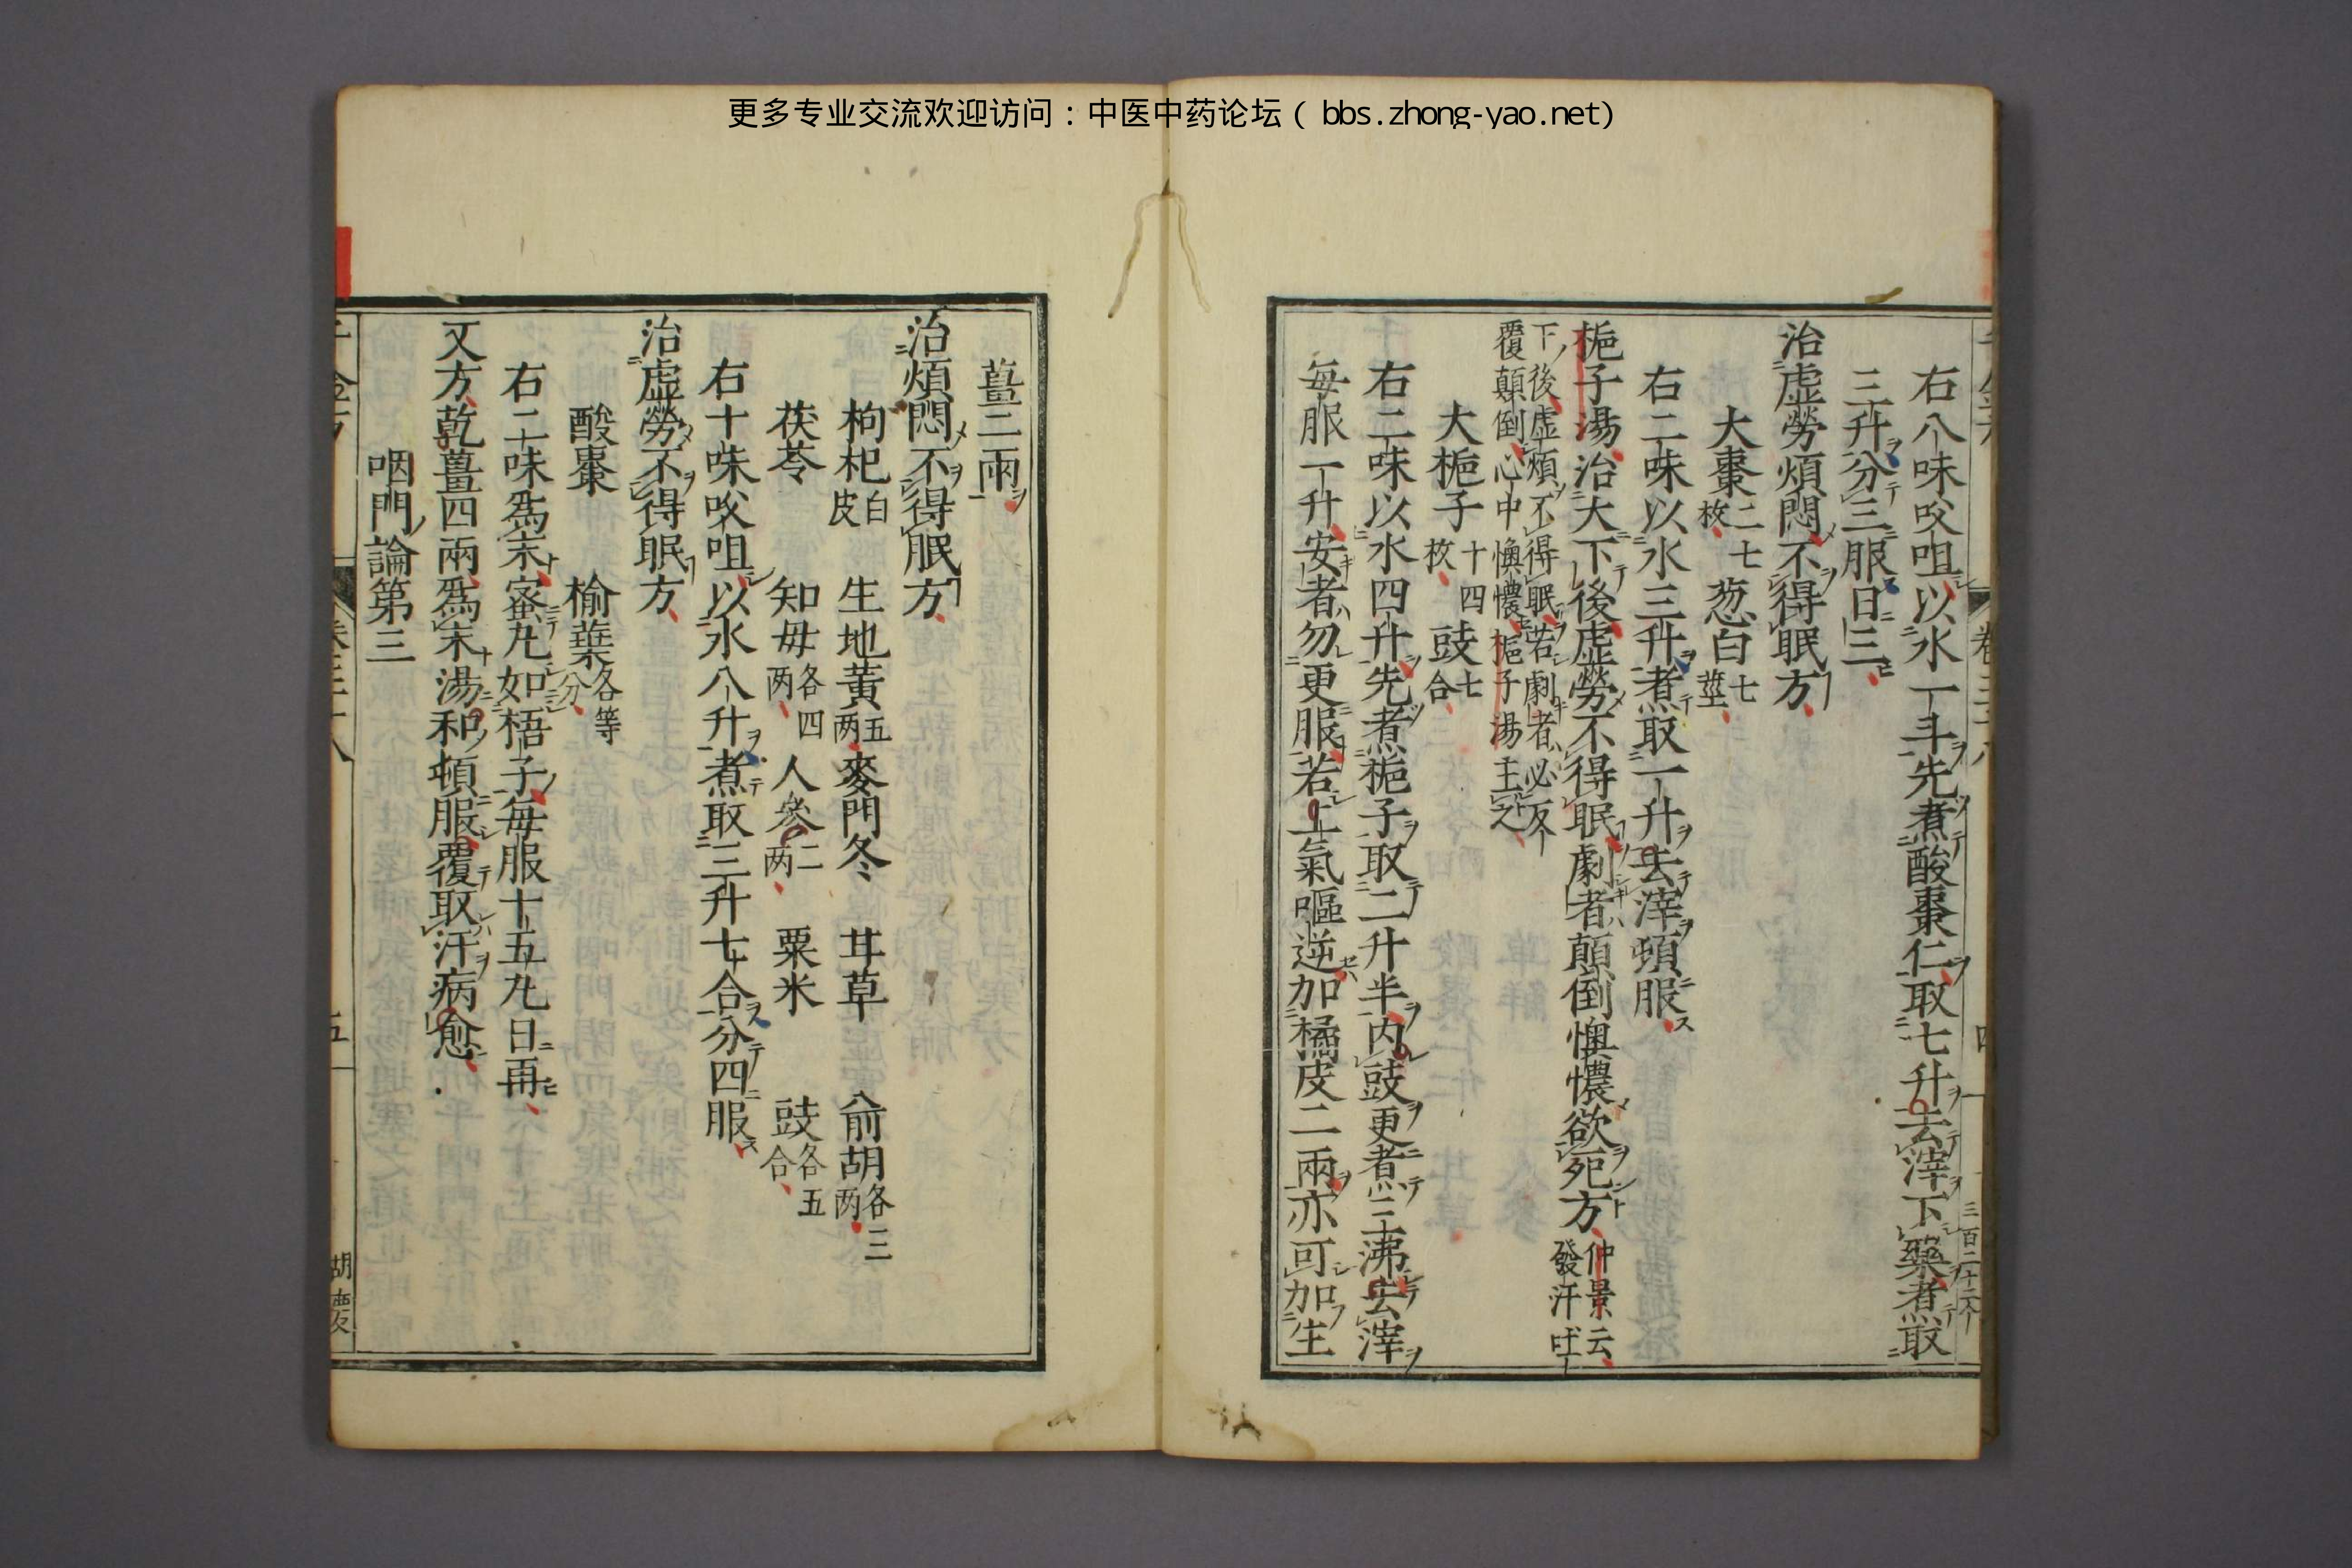 更多专业交流欢迎访问：中医中药论坛（bbs.zhong-yao.net)
三百二十二个
右八味㕮咀以水一斗先煮酸棗仁取七升去滓下藥煮取
三升分三服日三
治虛勞煩悶不得眠方
大棗二七枚 葱白七莖
右二味以水三升煮取一升去滓頓服
梔子湯治大下後虛勞不得眠劇者顛倒懊憹欲死方仲景云發汗吐
下後虛煩不得眠若劇者必反覆顛倒心中懊憹梔子湯主之
大梔子十四枚 豉七合
右二味以水四升先煮梔子取二升半內豉更煮三沸去滓
每服一升安者勿更服若上氣嘔逆加橘皮二兩亦可加生
薑二兩
治煩悶不得眠方
枸杞白皮 生地黃五两 麥門冬 甘草 前胡各三两
茯苓 知母各四两 人參二两 粟米 豉各五合
右十味㕮咀以水八升煮取三升七合分四服
治虛勞不得眠方
酸棗 榆葉各等分
右二味爲末蜜丸如梧子每服十五丸日再
又方乾薑四兩爲末湯和頓服覆取汗病愈
咽門論第三
五
胡慶